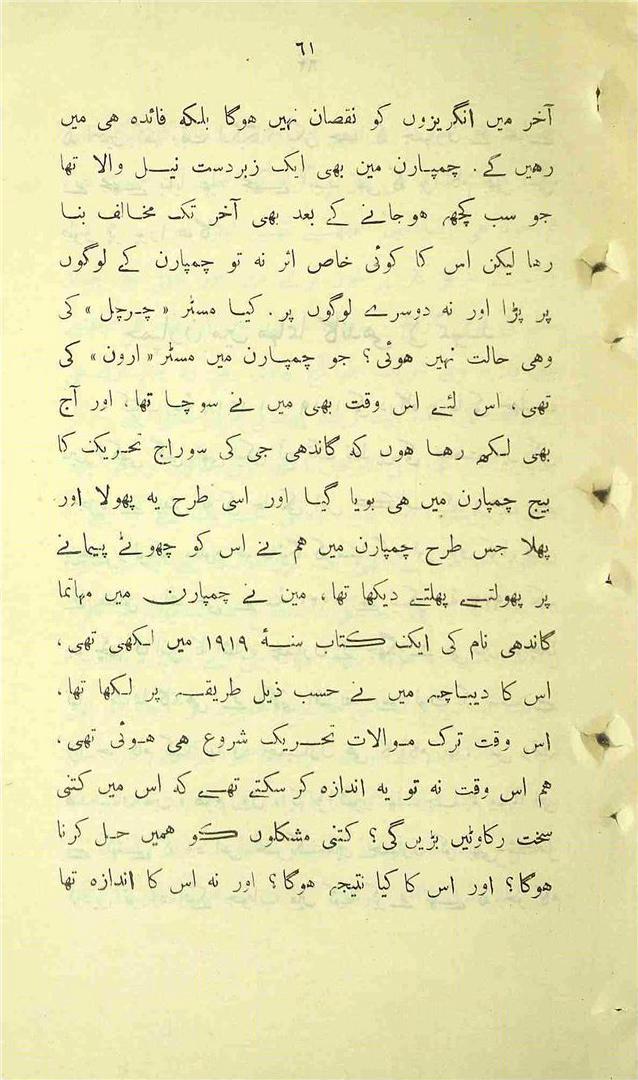 ٦١
آخر میں انگریزوں کو نقصان نہیں ہوگا بلکہ فائدہ ہی میں
رہیں گے۔ چمپارن مین بھی ایک زبردست نیل والا تھا
جو سب کچھ ہوجانے کے بعد بھی آخر تک مخالف بنا
رہا لیکن اس کا کوئی خاص اثر نہ تو چمپارن کے لوگوں
پر پڑا اور نہ دوسرے لوگوں پر۔ کیا مسٹر «چرچل» کی
وہی حالت نہیں ہوئی؟ جو چمپارن میں مسٹر «ارون» کی
تھی، اس لئے اس وقت بھی میں نے سوچا تھا، اور آج
بھی لکھ رہا ہوں کہ گاندھی جی کی سوراج تحریک کا
بیج چمپارن میں ہی بویا گیا اور اسی طرح یہ پھولا اور
پھلا جس طرح چمپارن میں ہم نے اس کو چھوٹے پیمانے
پر پھولتے پھلتے دیکھا تھا، مین نے چمپارن میں مہاتما
گاندھی نام کی ایک کتاب سنۂ ١٩١٩ میں لکھی تھی،
اس کا دیباچہ میں نے حسب ذیل طریقہ پر لکھا تھا،
اس وقت ترک موالات تحریک شروع ہی ہوئی تھی،
ہم اس وقت نہ تو یہ اندازہ کرسکتے تھے کہ اس میں کتنی
سخت رکاوٹیں بڑیں گی؟ کتنی مشکلوں کو ہمیں حل کرنا
ہوگا؟ اور اس کا کیا نتیجہ ہوگا؟ اور نہ اس کا اندازہ تھا